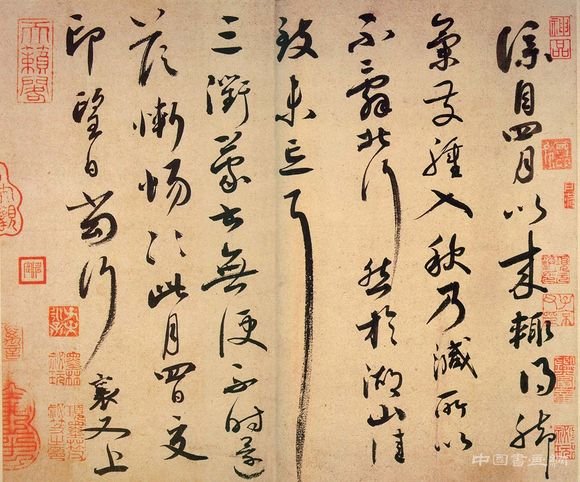 僕自四月以來輒得脚
氣發腫入秋乃減所以
不辭北行然於湖山佳
致未忘耳
三衢蒙書無便不時還
答慚惕〻此月四日交
印望日當行 襄又上
神品
天籟閣